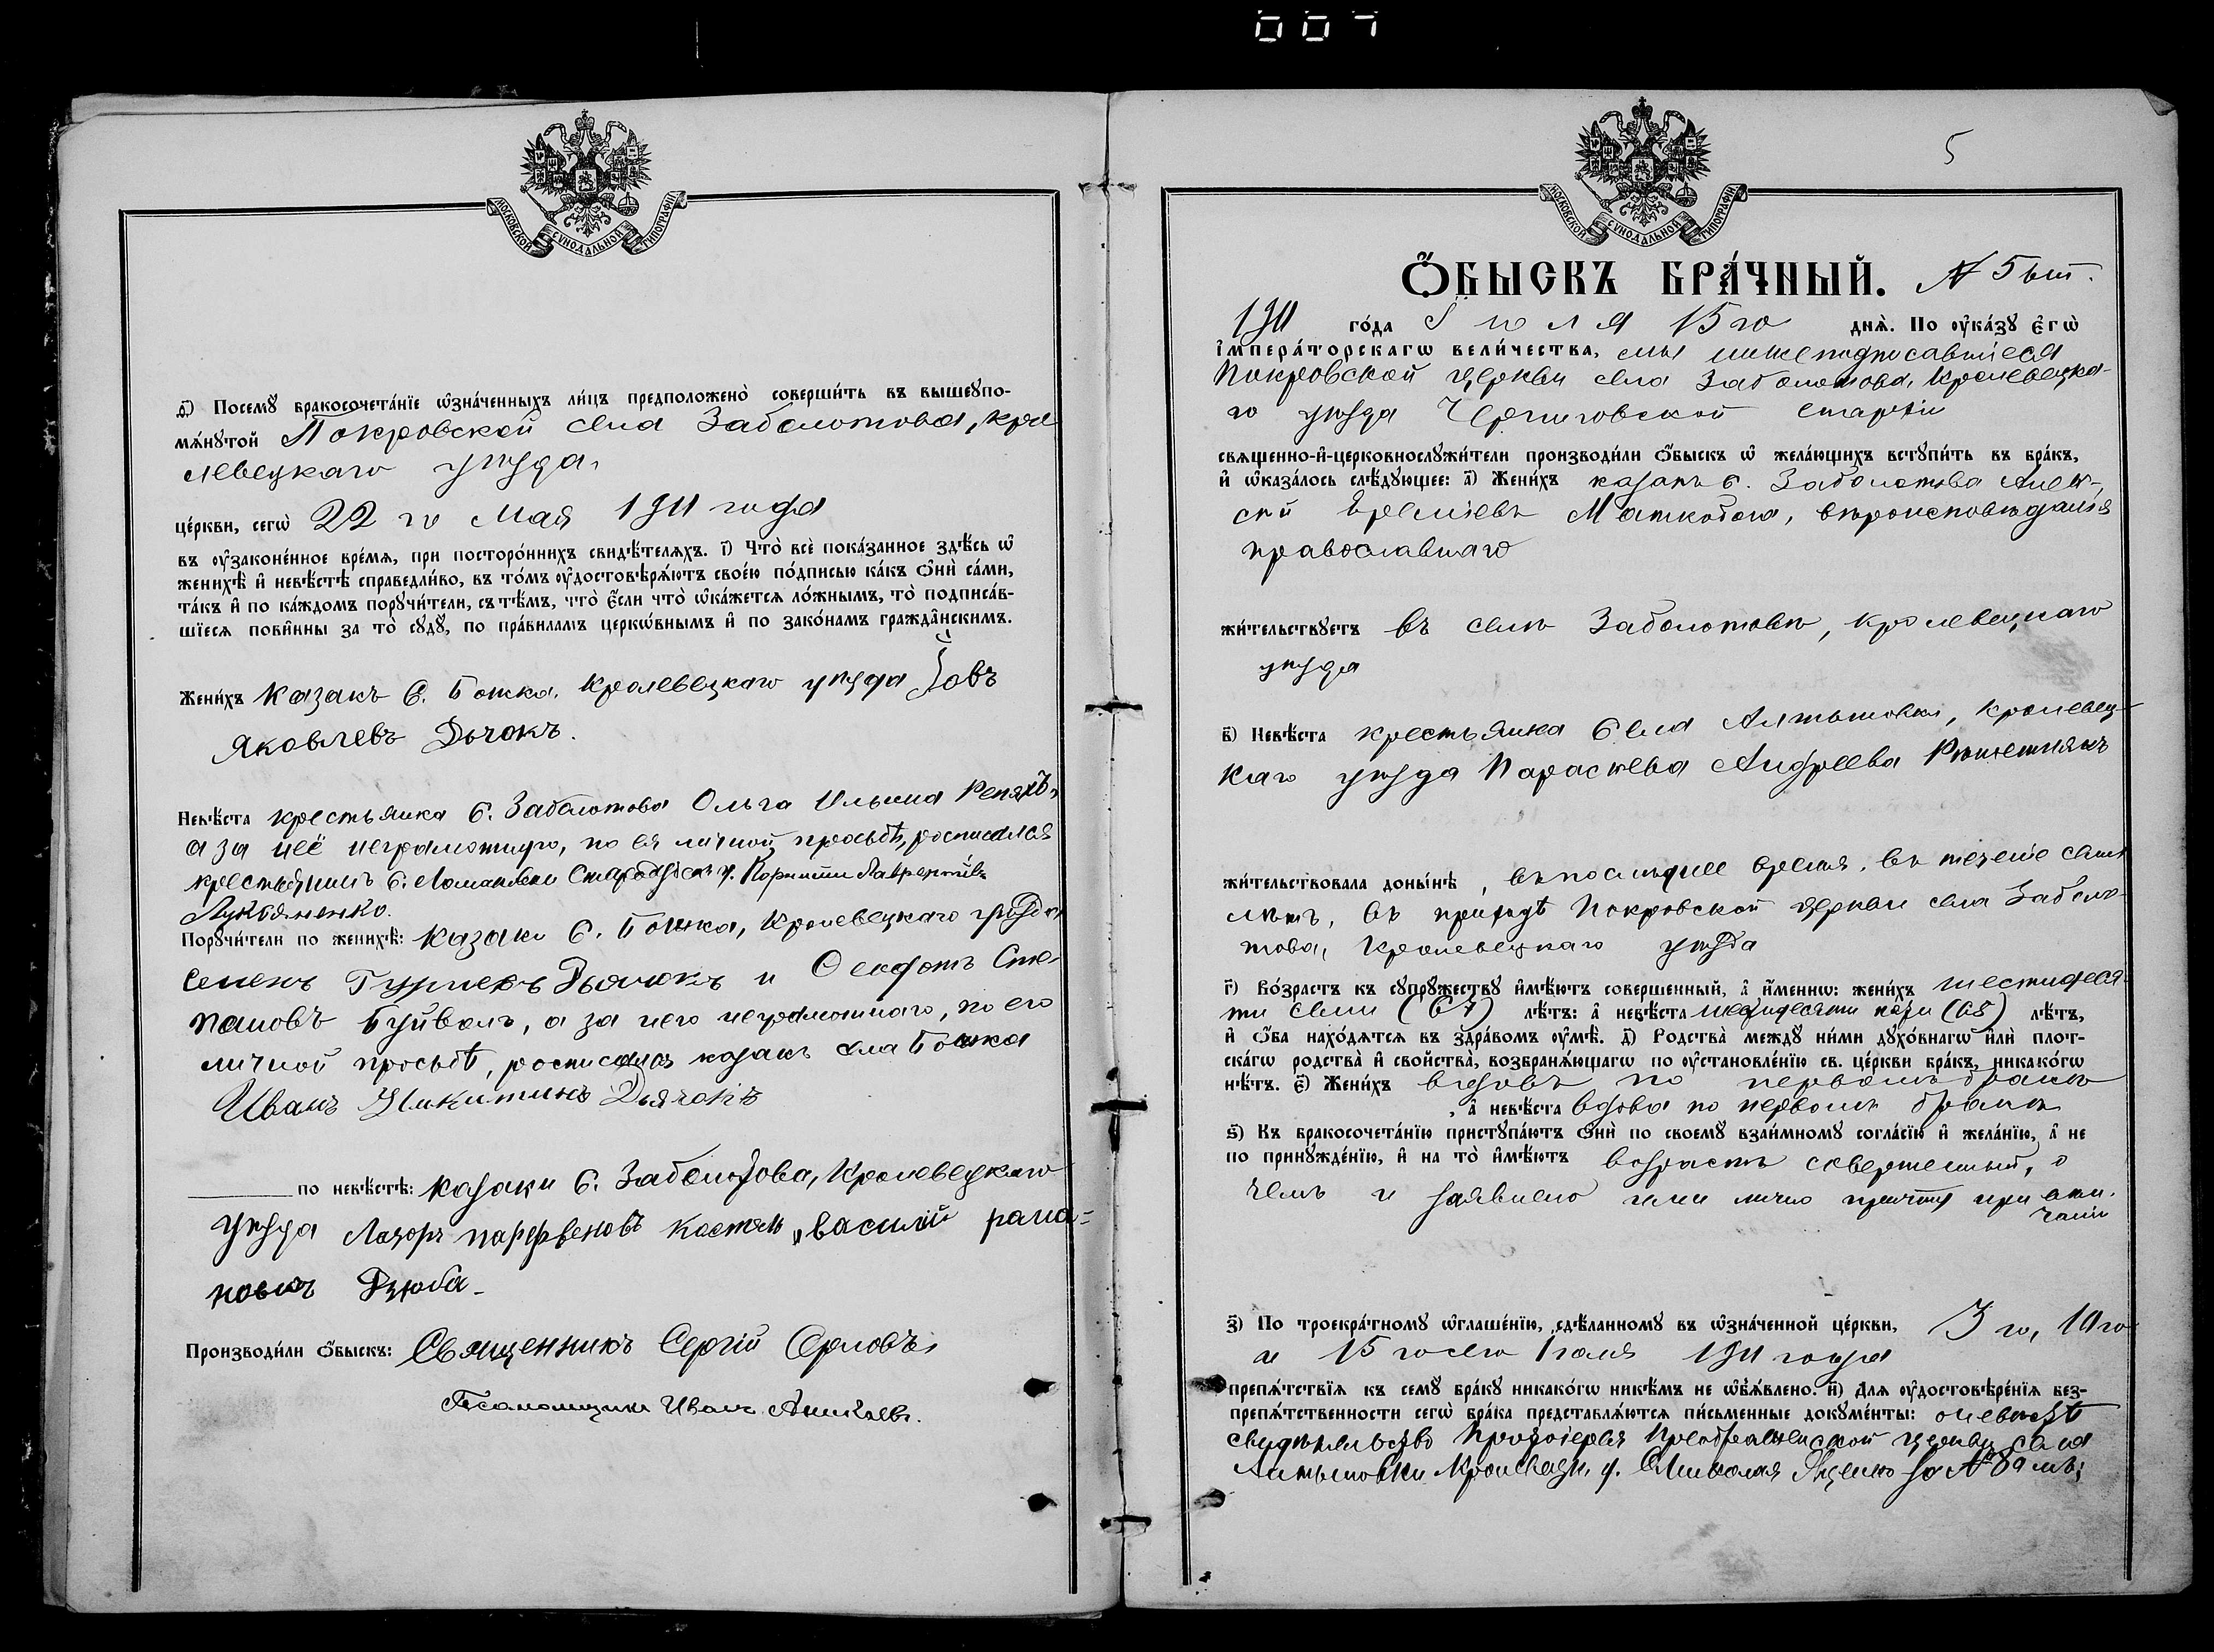 007
МОСКОВСКОЙ СѴНОДАЛЬНОЙ ТИПОГРАФІИ
д҃) Посемꙋ̀ бракосочета́нїе ѡ҆зна́ченныхъ ли́цъ предположено̀ соверши́ть въ вышеꙋпо-
мѧ́нꙋтой Покровской села Заболотова, Кро
левецкаго уѣзда,
це́ркви, сегѡ̀ 22 го Мая 1911 года
въ ᲂу҆законе́нное вре́мѧ, при посторо́ннихъ свидѣ́телѧхъ. і҃) Что̀ всѐ пока́занное здѣ́сь ѡ҆
женихѣ̀ и҆ невѣ́стѣ справедли́во, въ то́мъ ᲂу҆достовѣрѧ́ютъ свое́ю по́дписью ка́къ ѻ҆нѝ са́ми,
та́къ и҆ по ка́ждомъ порꙋчи́тели, съ тѣ́мъ, что̀ є҆́сли что̀ ѡ҆ка́жетсѧ ло́жнымъ, то̀ подписа́в-
шїесѧ пови́нны за то̀ сꙋдꙋ̀, по пра́виламъ церкѡ́внымъ и҆ по зако́намъ гражда́нскимъ.
Жени́хъ Казакъ с. Божка, Кролевецкаго уѣзда Іовъ
Яковлевъ Дьчокъ.
Невѣ́ста крестьянка с. Заболотова Ольга Ильина Репяхъ,
а за неё неграмотную, по ея личной просьбѣ, росписался
крестьянинъ с. Стародубск. у.
Лукьяненко.
Порꙋчи́тели по женихѣ̀: Казаки с. Божка, Кролевецкаго уѣзда
Семенъ Дьячокъ и Феодотъ Сте-
пановъ Буйволъ, а за него неграмотнаго, по его
личной просьбѣ, росписался казакъ села Божка
Иванъ Никитинъ Дьячокъ
по невѣ́стѣ: казаки с. Заболотова, Кролевецкаго
уѣзда Лазорь парфеновъ Костюк, василій рома=
новичъ Дзюба
Производи́ли ѻ҆́быскъ: Священникъ Сергій Орловъ,
Псаломщикъ Иванъ
5
МОСКОВСКОЙ СѴНОДАЛЬНОЙ ТИПОГРАФІИ
Ѻ҆́БЫСКЪ БРА́ЧНЫЙ. № 5 ый.
1911 го́да Іюля 15 го днѧ̀. По ᲂу҆ка́зꙋ є҆гѡ̀
і҆мпера́торскагѡ вели́чества, мы нижеподписавшіеся
Покровской церкви села Заболотова, Кролевецка-
го уѣзда Черниговской епархіи
свѧще́нно-и҆-церковнослꙋжи́тели производи́ли ѻ҆́быскъ ѡ҆ жела́ющихъ встꙋпи́ть въ бра́къ,
и҆ ѡ҆каза́лось слѣ́дꙋющее: а҃) Жени́хъ казакъ с. Заболотова Алек-
сѣй вѣроисповѣданія
православнаго
жи́тельствꙋетъ въ селѣ Заболотовѣ, Кролевецкаго
уѣзда
в҃) Невѣ́ста крестьянка села Алтыновки, Кролевец-
каго уѣзда Параскева Андреева
жи́тельствовала доны́нѣ, въ послѣднее время, въ теченіе семи
лѣтъ, въ приходѣ Покровской церкви села Заболо-
това, Кролевецкаго уѣзда
г҃) Во́зрастъ къ сꙋпрꙋ́жествꙋ и҆мѣ́ютъ соверше́нный, а҆ и҆́меннѡ: жени́хъ шестидеся-
ти семи (67) лѣ́тъ: а҆ невѣ́ста шестидесяти пяти (65) лѣ́тъ,
и҆ ѻ҆́ба нахо́дѧтсѧ въ здра́вомъ ᲂу҆мѣ̀. д҃) Родства̀ междꙋ ни́ми дꙋхо́внагѡ и҆лѝ плот-
ска́гѡ родства̀ и҆ сво́йства̀, возбранѧ́ющагѡ по ᲂу҆становле́нїю св. це́ркви бра́къ, никако́гѡ
нѣ́тъ. є҃) Жени́хъ вдовъ по первомъ бракѣ
, а҆ невѣ́ста вдова по первомъ бракѣ
ѕ҃) Къ бракосочета́нїю пристꙋпа́ютъ ѻ҆нѝ по своемꙋ̀ взаи́мномꙋ согла́сїю и҆ жела́нїю, а҆ не
по принꙋжде́нїю, и҆ на то̀ и҆мѣ́ютъ возрастъ совершенный, о
чемъ и заявлено ими лично причту при огла-
шеніи
з҃) По троекра́тномꙋ ѡ҆глаше́нїю, сдѣ́ланномꙋ въ ѡ҆зна́ченной це́ркви, 3 го, 10 го
и 15 го сего Іюля 1911 года
препѧ́тствїѧ къ семꙋ̀ бра́кꙋ никако́гѡ никѣ́мъ не ѡ҆б̾ѧ́влено. и҃) Длѧ ᲂу҆достовѣре́нїѧ без-
препѧ́тственности сегѡ̀ бра́ка представлѧ́ютсѧ пи́сьменные докꙋме́нты: о невѣстѣ
свидѣтельство Протоіерея Преображенской церкви села
Алтыновки Кролевецк. у. Николая Яценко за №